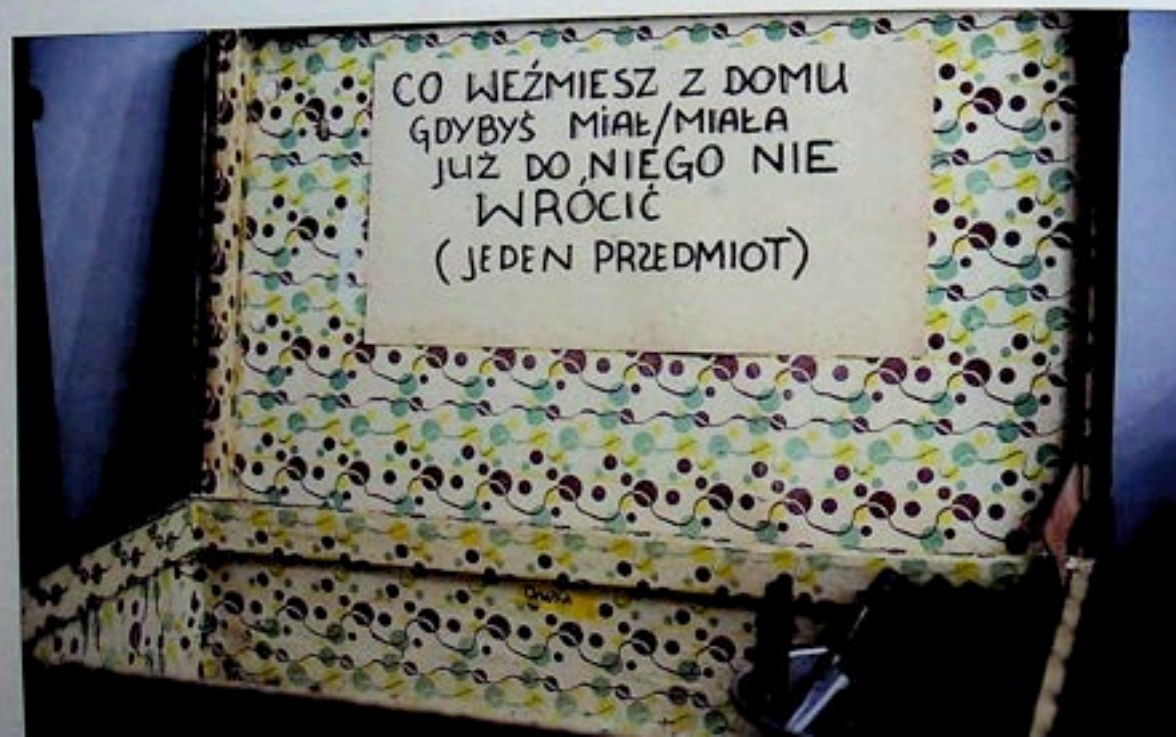 CO WEŹMIESZ Z DOMU
GDYBYŚ MIAŁ/MIAŁA
JUŻ DO NIEGO NIE
WRÓCIĆ
(JEDEN PRZEDMIOT)